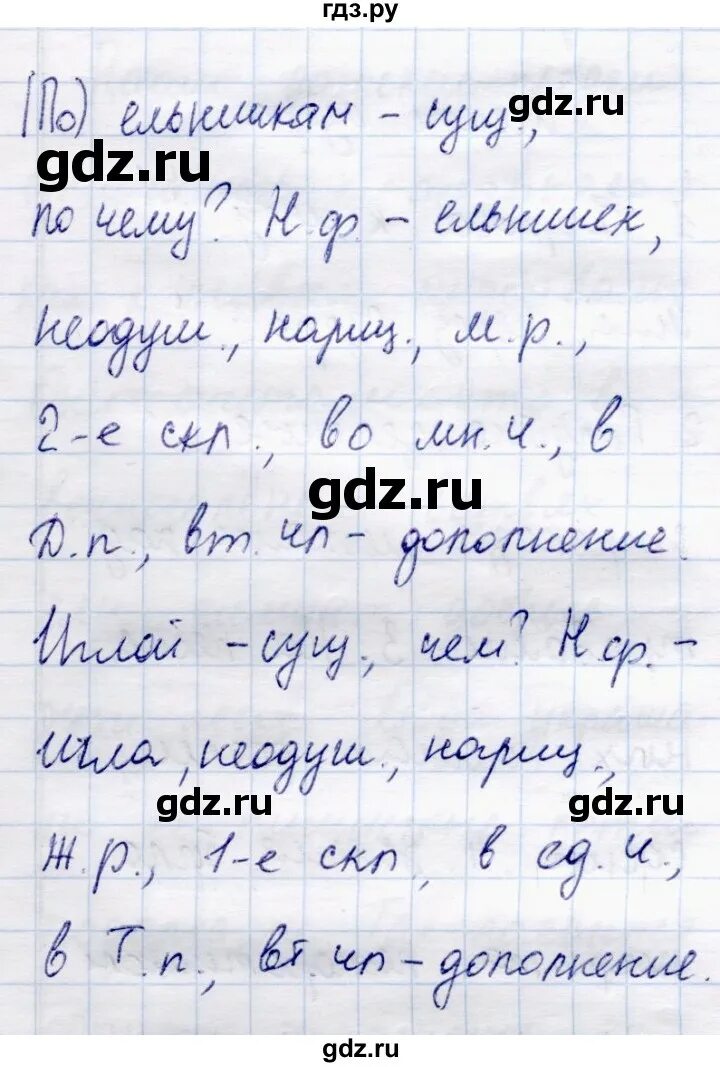 гдз.ру
(По) ельникам - сущ.,
gdz.ru
gdz.ru
по чему? Н.ф. - ельник,
неодуш., нариц., м.р.,
2-е скл., во мн.ч., в
gdz.ru
Д.п., вт. чл - дополнение.
Иглой - сущ., чем? Н.ф. -
игла, неодуш., нариц.,
gdz.ru
gdz.ru
Ж.р., 1-е скл, в ед.ч.,
в Т.п., вт. чл - дополнение.
gdz.ru